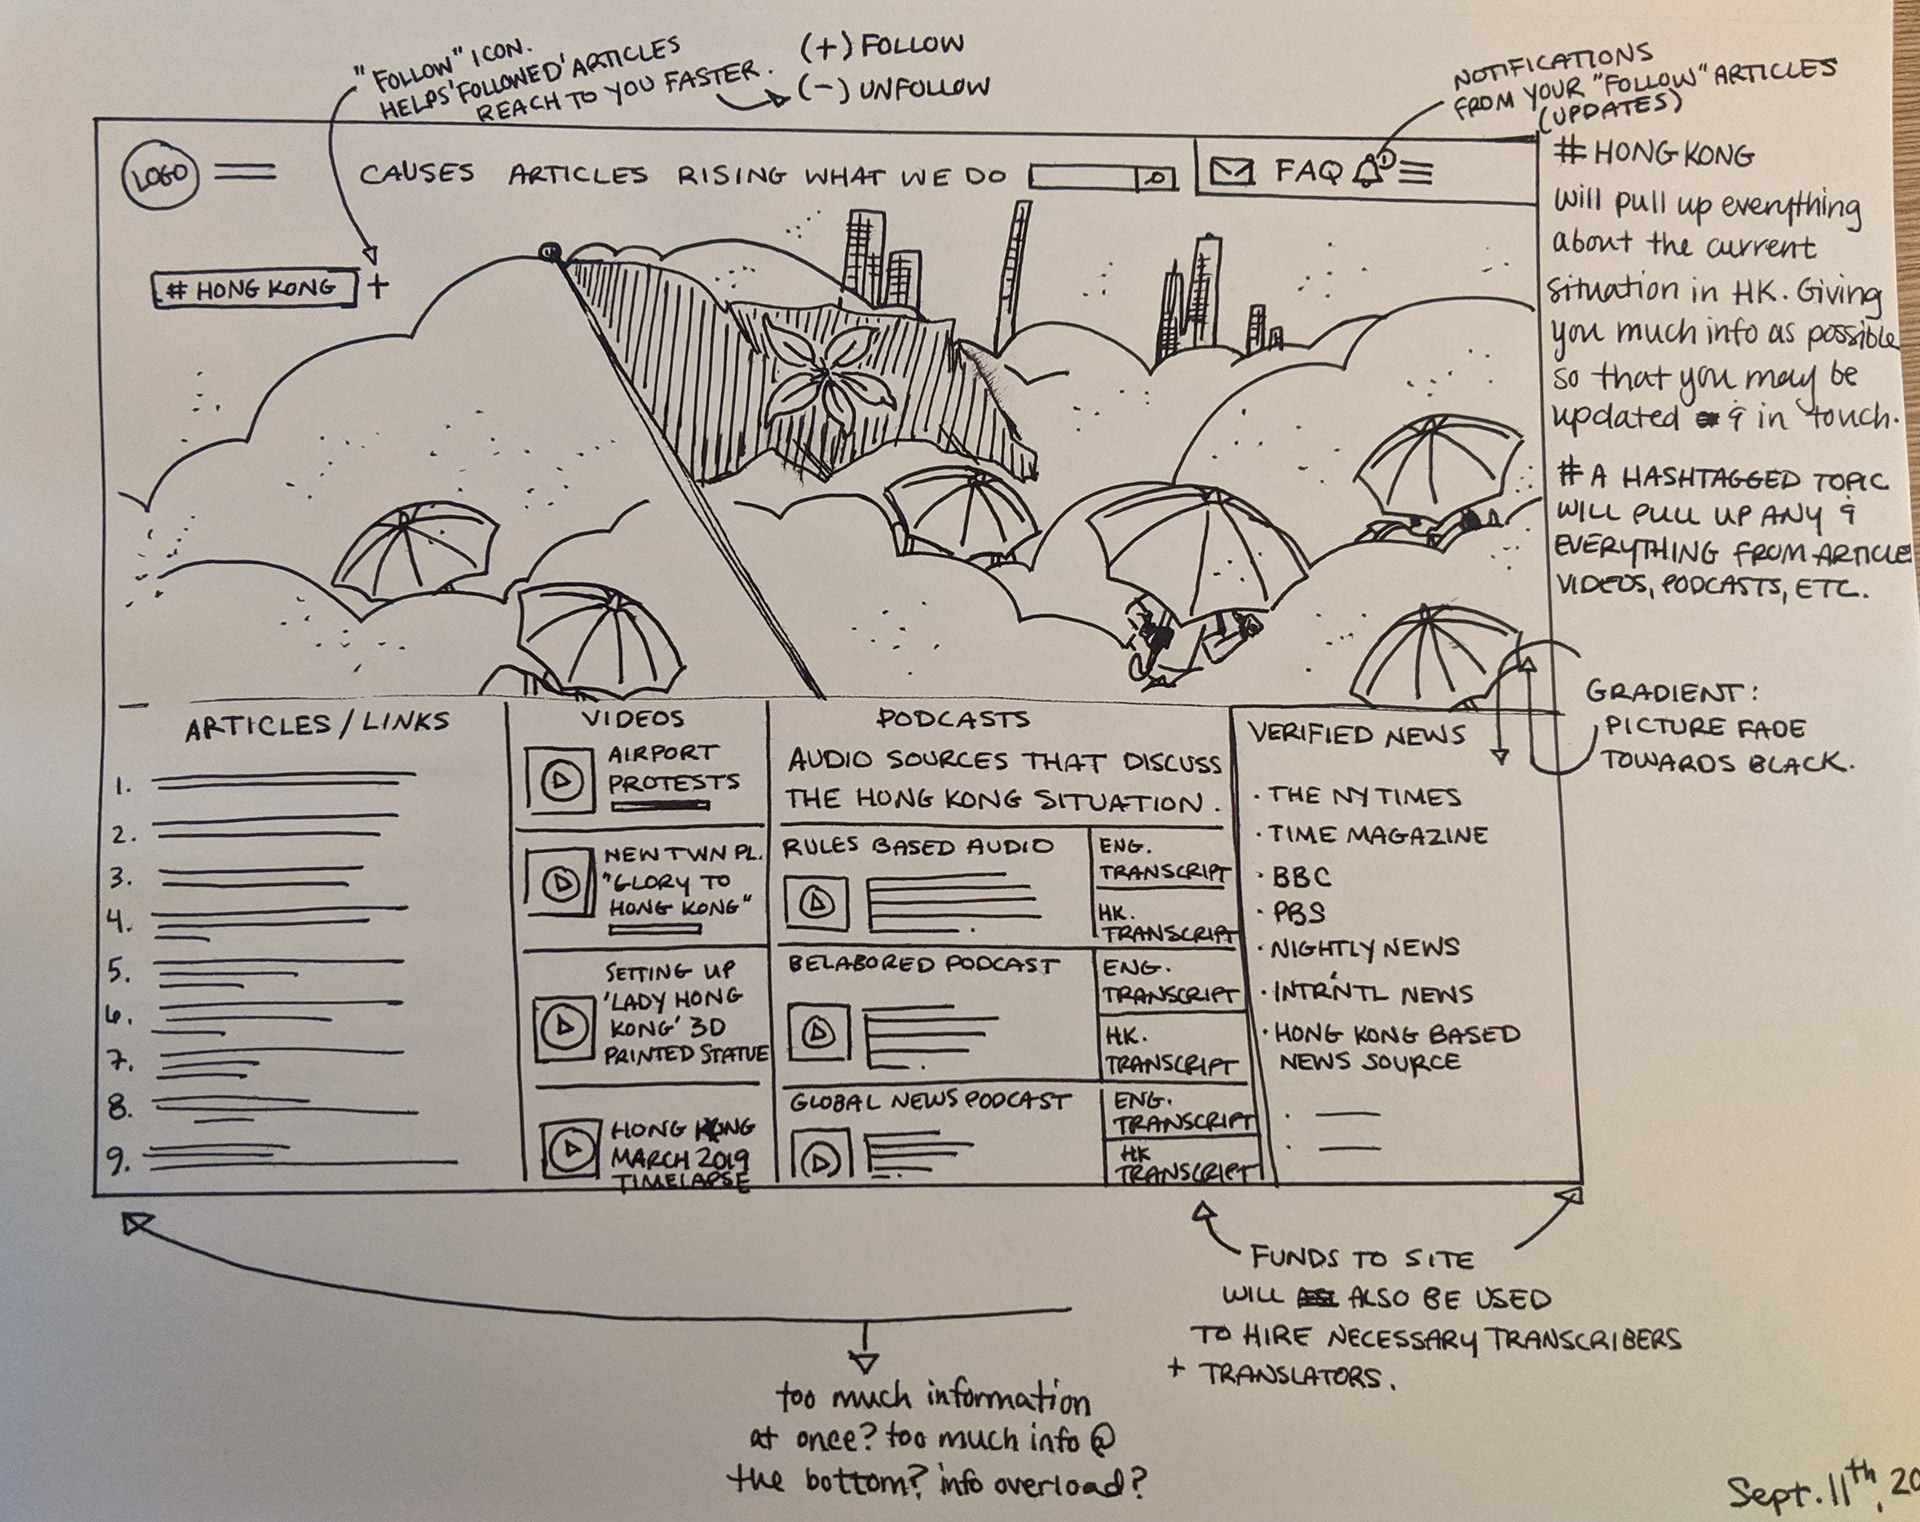 "FOLLOW" ICON.
HELPS 'FOLLOWED' ARTICLES
REACH TO YOU FASTER.
(+) FOLLOW
(-) UNFOLLOW
NOTIFICATIONS
FROM YOUR "FOLLOW" ARTICLES
(UPDATES)
LOGO
CAUSES ARTICLES RISING WHAT WE DO
FAQ
# HONG KONG +
# HONG KONG
will pull up everything
about the current
situation in HK. Giving
you much info as possible
so that you may be
updated & in touch.
# A HASHTAGGED TOPIC
WILL PULL UP ANY &
EVERYTHING FROM ARTICLE
VIDEOS, PODCASTS, ETC.
GRADIENT:
PICTURE FADE
TOWARDS BLACK.
ARTICLES / LINKS
1.
2.
3.
4.
5.
6.
7.
8.
9.
VIDEOS
AIRPORT
PROTESTS
NEW TWN PL.
"GLORY TO
HONG KONG"
SETTING UP
'LADY HONG
KONG' 3D
PRINTED STATUE
HONG KONG
MARCH 2019
TIMELAPSE
PODCASTS
AUDIO SOURCES THAT DISCUSS
THE HONG KONG SITUATION.
RULES BASED AUDIO
ENG.
TRANSCRIPT
HK.
TRANSCRIPT
BELABORED PODCAST
ENG.
TRANSCRIPT
HK.
TRANSCRIPT
GLOBAL NEWS PODCAST
ENG.
TRANSCRIPT
HK
TRANSCRIPT
VERIFIED NEWS
· THE NY TIMES
· TIME MAGAZINE
· BBC
· PBS
· NIGHTLY NEWS
· INTR'NTL NEWS
· HONG KONG BASED
NEWS SOURCE
FUNDS TO SITE
WILL ALSO BE USED
TO HIRE NECESSARY TRANSCRIBERS
+ TRANSLATORS.
too much information
at once? too much info @
the bottom? info overload?
Sept. 11th, 20